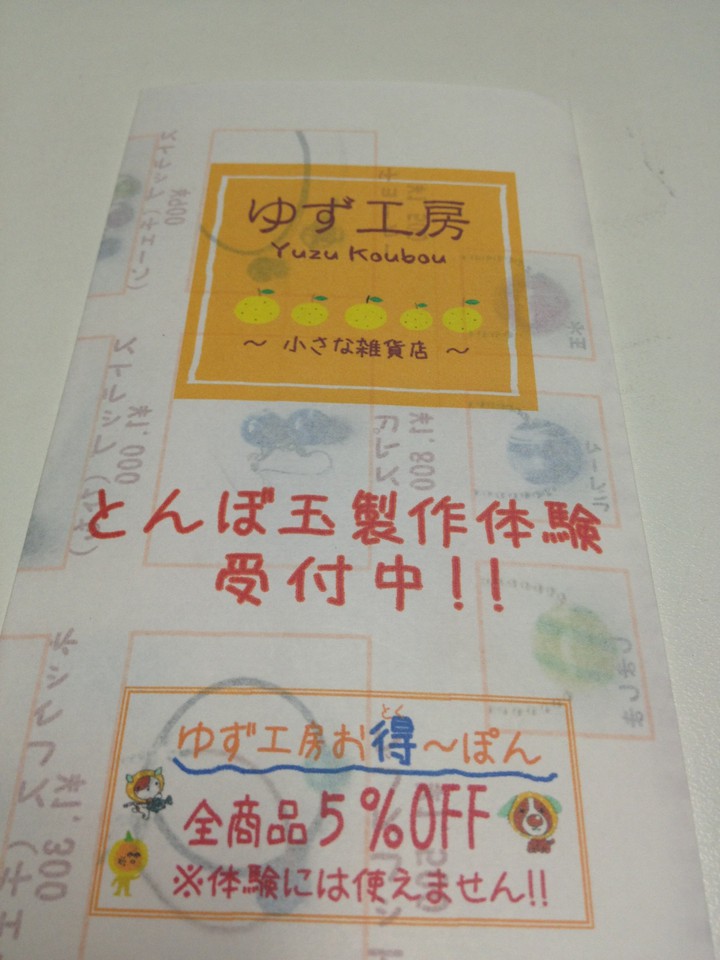 ゆず工房
Yuzu Koubou
～ 小さな雑貨店 ～
とんぼ玉製作体験
受付中!!
とく
ゆず工房お得～ぽん
全商品5%OFF
※体験には使えません!!